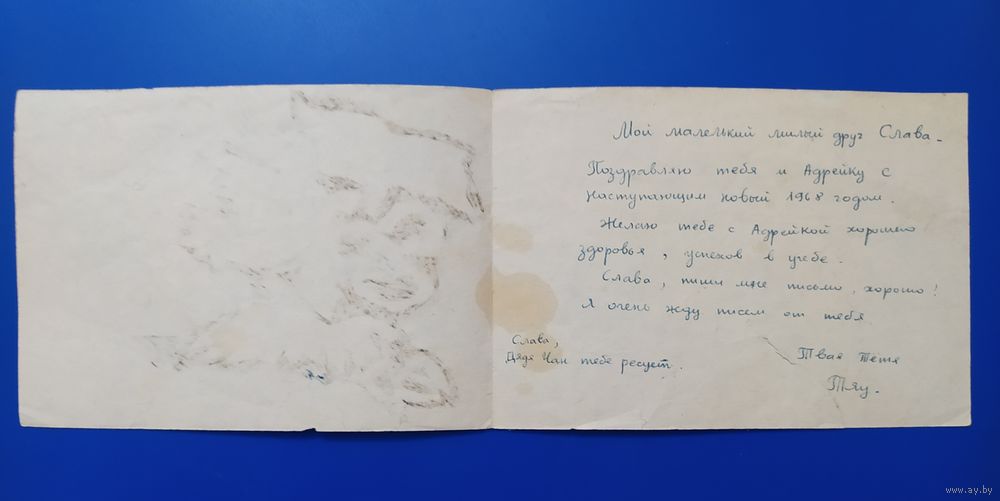 Мой маленький милый друг Слава.
Поздравляю тебя и Адрейку с
наступающим новый 1968 годом.
Желаю тебе с Адрейкой хорошего
здоровья, успехов в учебе.
Слава, пиши мне письмо, хорошо!
Я очень жду писем от тебя
Твая тетя
Тяу.
Слава,
Дядя Чан тебе ресует.
www.ay.by